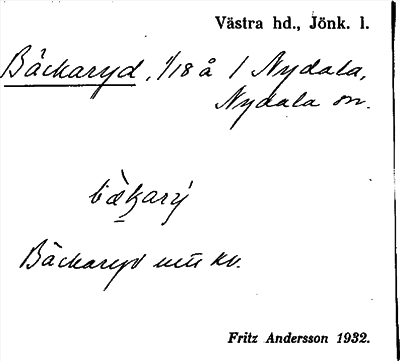 Västra hd., Jönk. l.
Bäckaryd, 1/18 å 1 Nydala,
Nydala sn.
Bäckaryd
Fritz Andersson 1932.